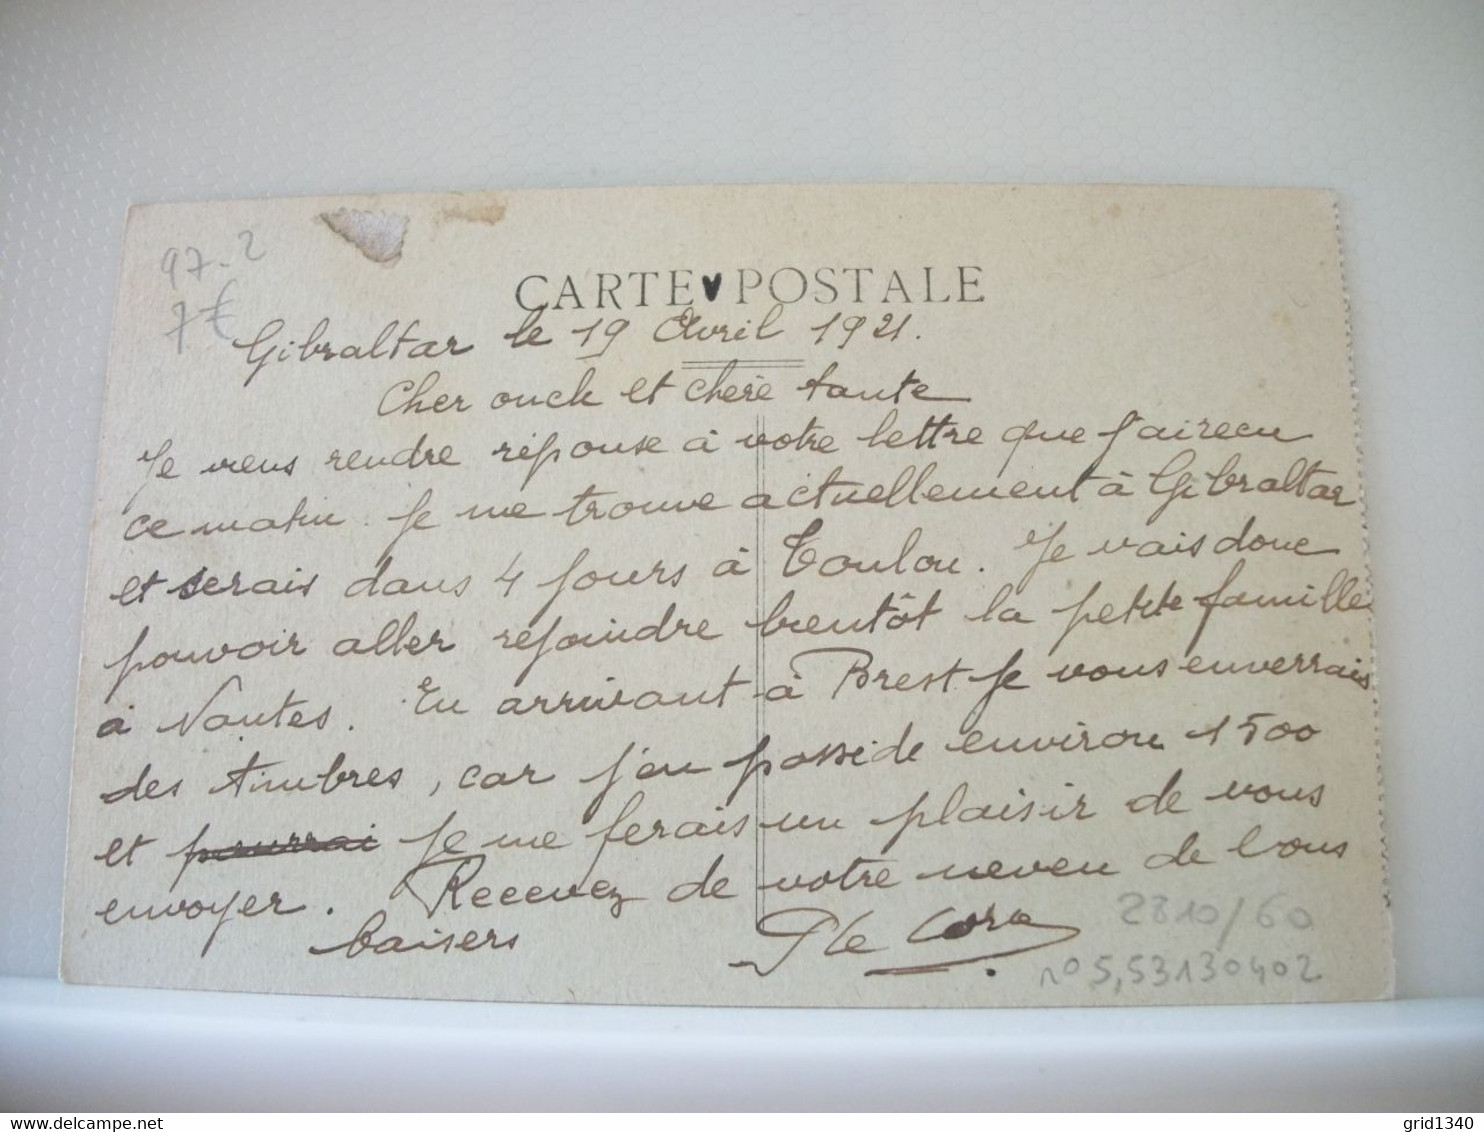 97-2
7€
CARTE POSTALE
Gibraltar le 19 Avril 1921.
Cher oncle et chère tante
Je viens rendre réponse à votre lettre que j'ai recu
ce matin. Je me trouve actuellement à Gibraltar
et serais dans 4 jours à Toulon. Je vais donc
pouvoir aller rejoindre bientôt la petite famille
à Nantes. En arrivant à Brest je vous enverrais
des timbres, car j'en possède environ 1500
et pourrai je me ferais un plaisir de vous
envoyer. Recevez de votre neveu de bons
baisers
2810/60
n° 5,53130402
grid1340